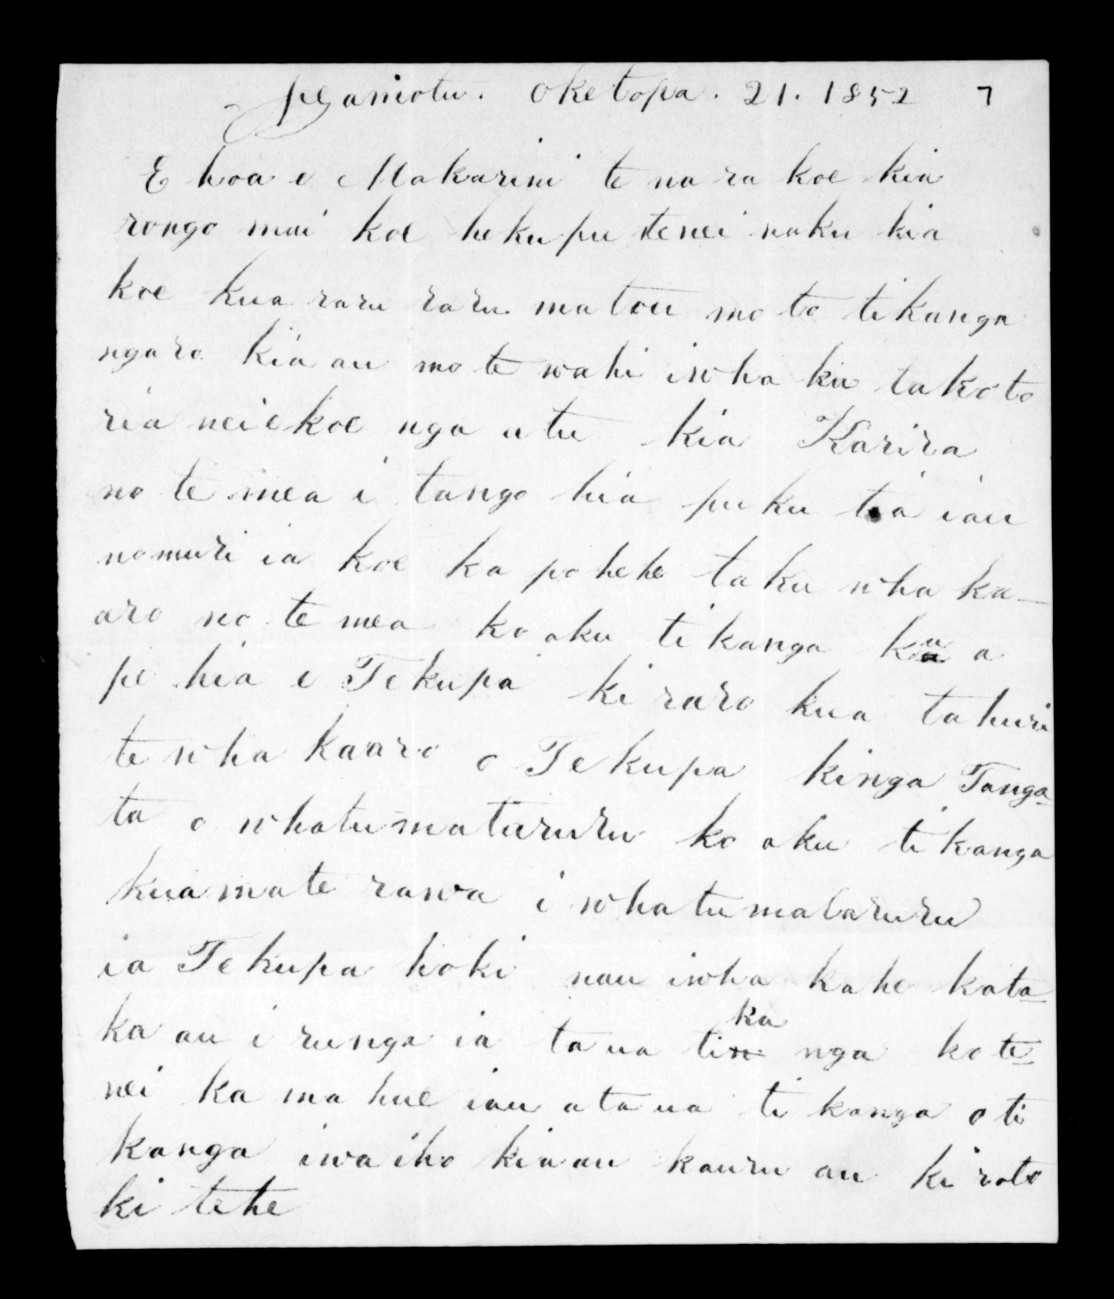 Ngamotu. Oketopa. 21. 1852 7
E hoa e Makarini te na ra koe kia
rongo mai koe hekupu tenei naku kia
koe kua raru raru matou mo to tikanga
ngaro kia au mo te wahi iwha ka takoto
ria neiekoe nga utu kia Karira
no te mea i tango hia puku tia iau
nomuri ia koe ka po hehe taku wha ka-
aro no te mea ko aku tikanga kua a
pe hia e Tekupa ki raro kua tahuri
te wha kaaro o Te kupa kinga Tanga-
ta o whatu-mataruru ko aku tikanga
kuamate rawa i whatumataruru
ia Tekupa hoki nau iwha kahe kata-
ka au i runga ia taua tikanga kote-
nei ka ma hue iau ataua tikanga o ti
kanga iwaiho kiaau kauru au ki roto
ki tehe